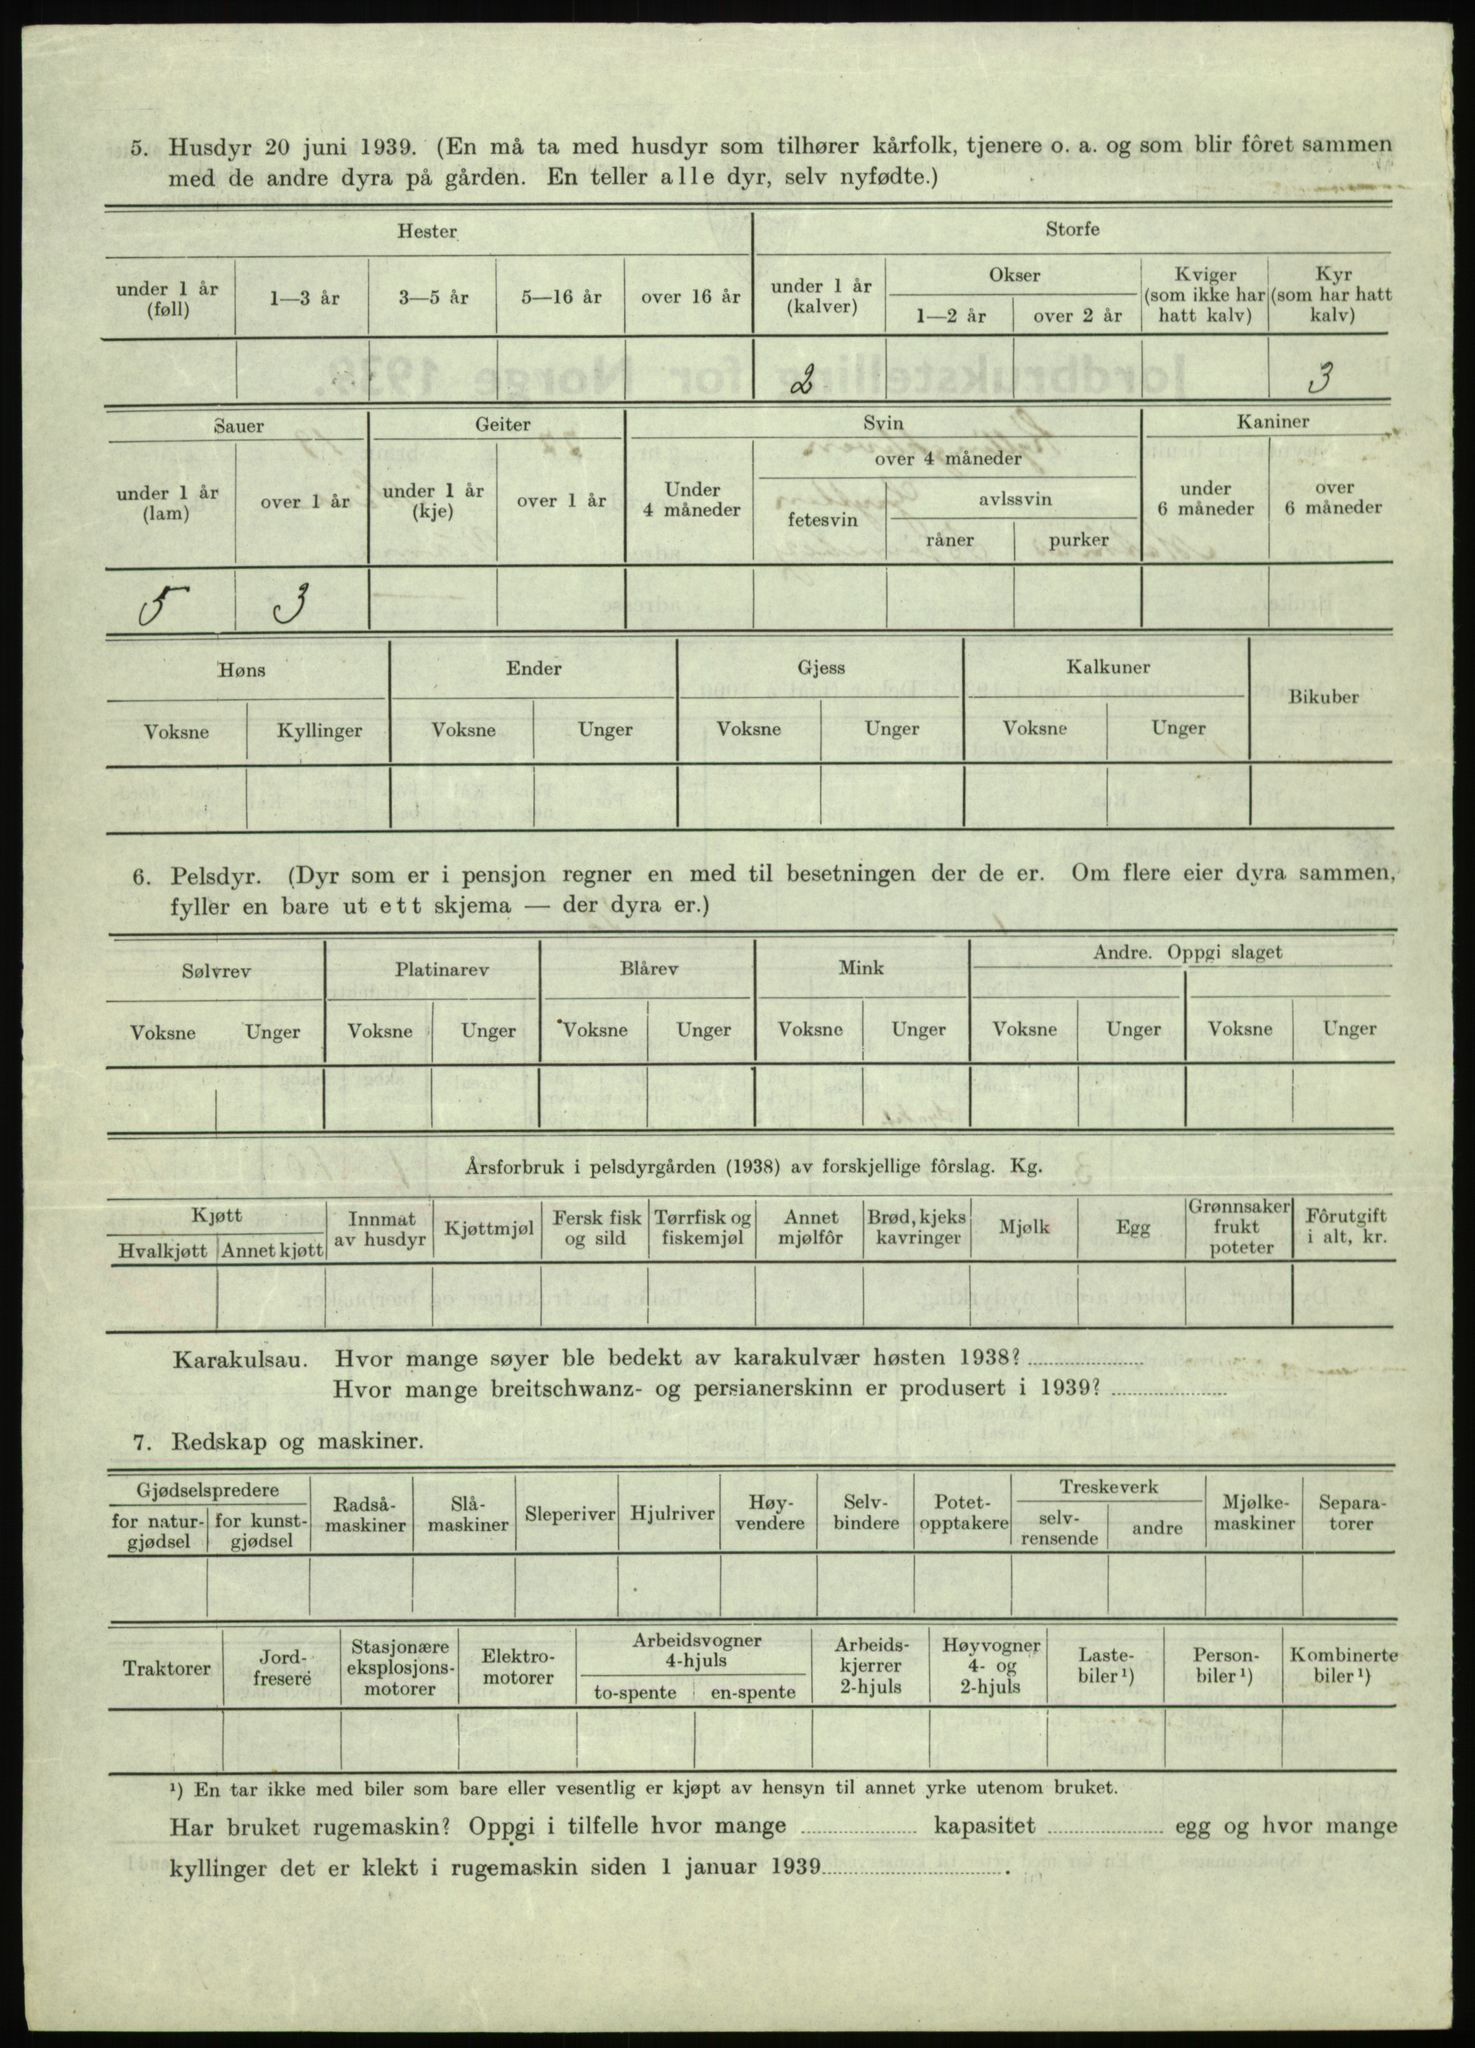 5. Husdyr 20 juni 1939. (En må ta med husdyr som tilhører kårfolk, tjenere o. a. og som blir fôret sammen
med de andre dyra på gården. En teller alle dyr, selv nyfødte.)
Hester Storfe
under 1 år (føll) 1—3 år 3—5 år 5—16 år over 16 år under 1 år (kalver) Okser 1—2 år over 2 år Kviger (som ikke har hatt kalv) Kyr (som har hatt kalv)
2 3
Sauer Geiter Svin Kaniner
under 1 år (lam) over 1 år under 1 år (kje) over 1 år Under 4 måneder over 4 måneder fetesvin avlssvin råner purker under 6 måneder over 6 måneder
5 3 —
Høns Ender Gjess Kalkuner Bikuber
Voksne Kyllinger Voksne Unger Voksne Unger Voksne Unger
6. Pelsdyr. (Dyr som er i pensjon regner en med til besetningen der de er. Om flere eier dyra sammen,
fyller en bare ut ett skjema — der dyra er.)
Sølvrev Platinarev Blårev Mink Andre. Oppgi slaget
Voksne Unger Voksne Unger Voksne Unger Voksne Unger Voksne Unger Voksne Unger
Årsforbruk i pelsdyrgården (1938) av forskjellige fôrslag. Kg.
Kjøtt Hvalkjøtt Annet kjøtt Innmat av husdyr Kjøttmjøl Fersk fisk og sild Tørrfisk og fiskemjøl Annet mjølfôr Brød, kjeks kavringer Mjølk Egg Grønnsaker frukt poteter Fôrutgift i alt, kr.
Karakulsau. Hvor mange søyer ble bedekt av karakulvær høsten 1938?
Hvor mange breitschwanz- og persianerskinn er produsert i 1939?
7. Redskap og maskiner.
Gjødselspredere for natur-gjødsel for kunst-gjødsel Radså-maskiner Slå-maskiner Sleperiver Hjulriver Høy-vendere Selv-bindere Potet-opptakere Treskeverk selv-rensende andre Mjølke-maskiner Separa-torer
Traktorer Jord-fresere Stasjonære eksplosjons-motorer Elektro-motorer Arbeidsvogner 4-hjuls to-spente en-spente Arbeids-kjerrer 2-hjuls Høyvogner 4- og 2-hjuls Laste-biler ¹) Person-biler ¹) Kombinerte biler ¹)
¹) En tar ikke med biler som bare eller vesentlig er kjøpt av hensyn til annet yrke utenom bruket.
Har bruket rugemaskin? Oppgi i tilfelle hvor mange kapasitet egg og hvor mange
kyllinger det er klekt i rugemaskin siden 1 januar 1939 .